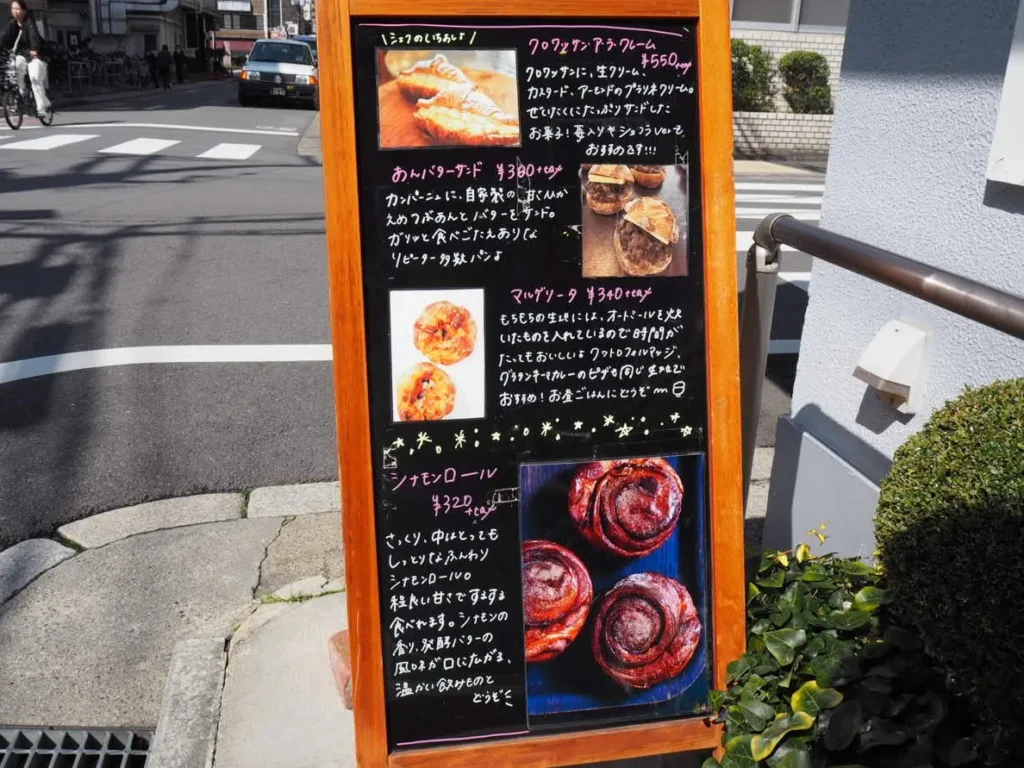 \シェフのいちおし/
クロワッサン・アラ・クレーム
¥550+tax
クロワッサンに、生クリーム、
カスタード、アーモンドのプラリネクリーム。
ぜいたくにたっぷりサンドした
お菓子！苺入りやショコラverで、
おすすめです!!!
あんバターサンド ¥360+tax
カンパーニュに、自家製の甘さひか
えめつぶあんとバターをサンド。
ガリッと食べごたえありな
リピーター多数パンよ
マルゲリータ ¥340+tax
もちもちの生地には、オートミールを炊
いたものを入れているので時間が
たってもおいしいよ クワトロフォルマッジ、
グラタンキーマカレーのピザも同じ生地で
おすすめ！お昼ごはんにどうぞ
シナモンロール
¥320
+tax
さっくり、中はとっても
しっとりなふんわり
シナモンロール。
程良い甘さでするする
食べれます。シナモンの
香り、発酵バターの
風味が口に広がる、
温かい飲みものと
どうぞ